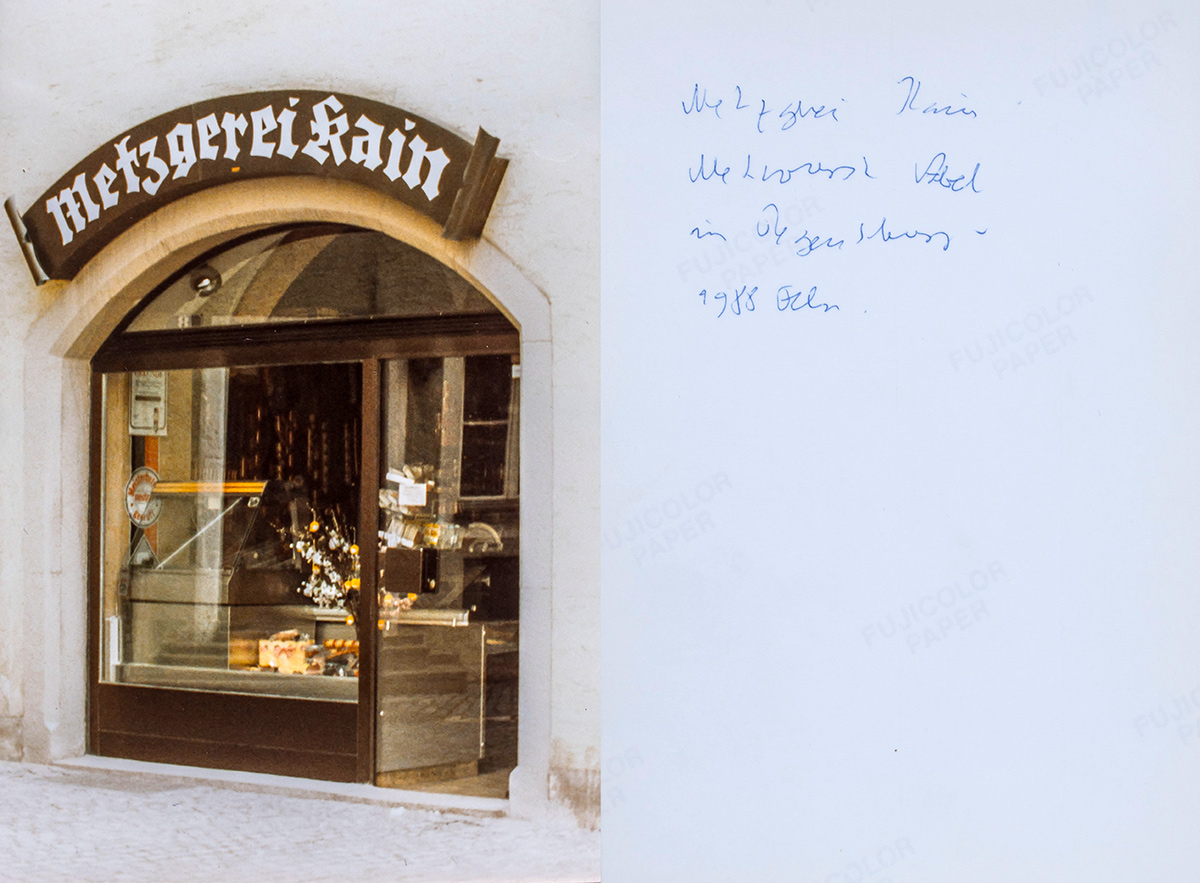 Metzgerei Kain
Metzgerei Kain
Metwurst Abel
in Regensburg -
1988
FUJICOLOR
PAPER
FUJICOLOR
PAPER
FUJICOLOR
PAPER
FUJICOLOR
PAPER
FUJICOLOR
PAPER